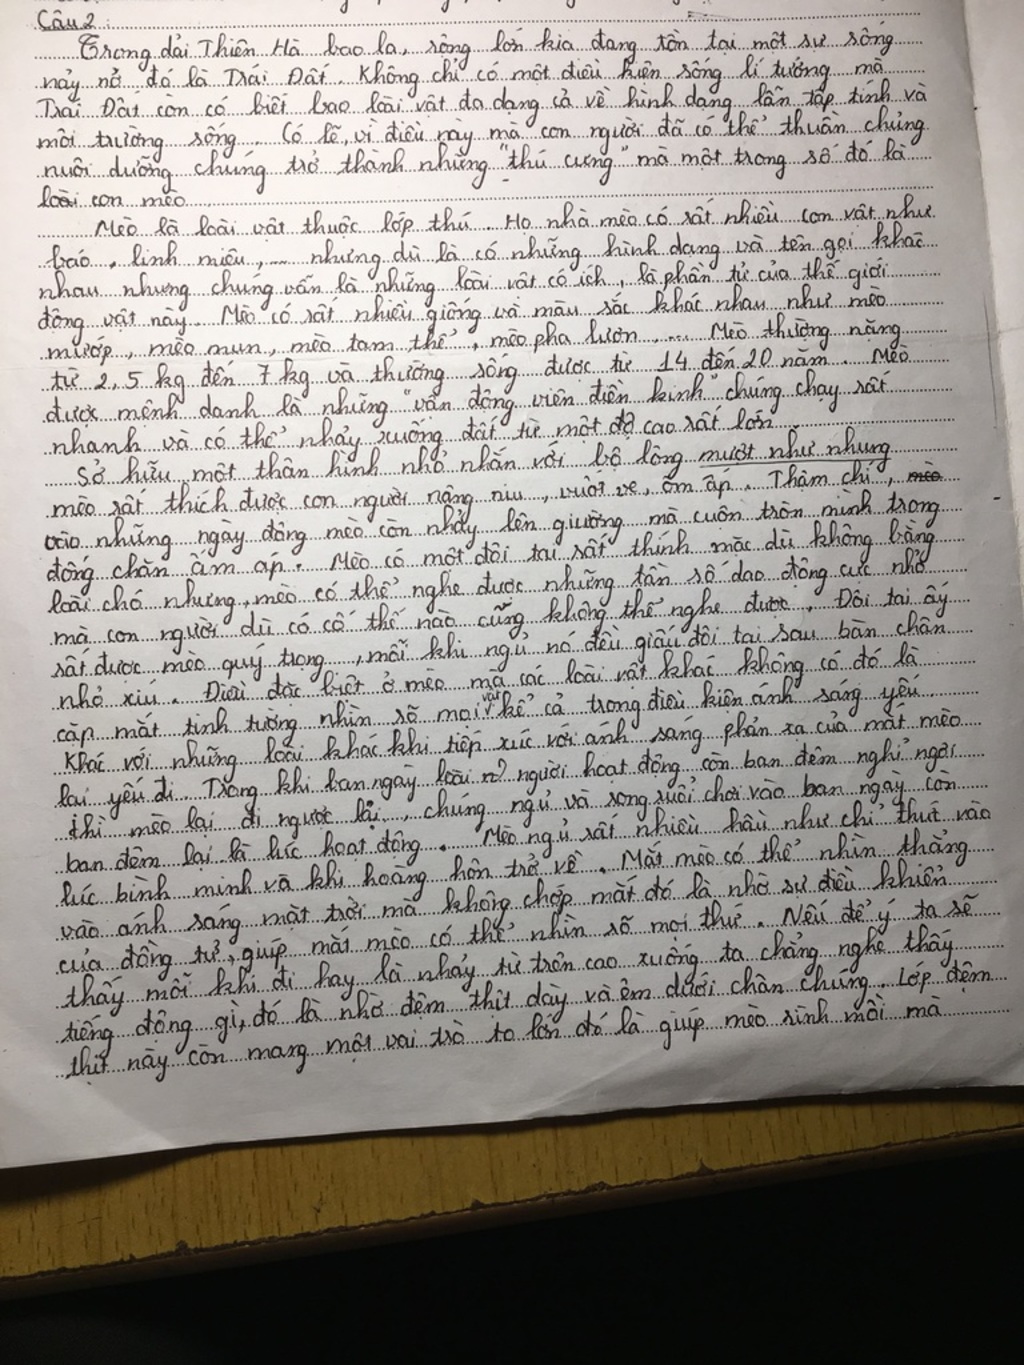 Câu 2:
Trong dải Thiên Hà bao la, rộng lớn kia đang tồn tại một sự sống
nảy nở đó là Trái Đất. Không chỉ có một điều kiện sống lí tưởng mà
Trái Đất còn có biết bao loài vật đa dạng cả về hình dạng lẫn tập tính và
môi trường sống. Có lẽ, vì điều này mà con người đã có thể thuần chủng
nuôi dưỡng chúng trở thành những "thú cưng" mà một trong số đó là
loài con mèo.
Mèo là loài vật thuộc lớp thú. Họ nhà mèo có rất nhiều con vật như
báo, linh miêu, ... nhưng dù là có những hình dạng và tên gọi khác
nhau nhưng chúng vẫn là những loài vật có ích, là phần tử của thế giới
động vật này. Mèo có rất nhiều giống và màu sắc khác nhau như mèo
mướp, mèo mun, mèo tam thể, mèo pha lươn, ... Mèo thường nặng
từ 2,5 kg đến 7 kg và thường sống được từ 14 đến 20 năm. Mèo
được mệnh danh là những "vận động viên điền kinh" chúng chạy rất
nhanh và có thể nhảy xuống đất từ một độ cao rất lớn
Sở hữu một thân hình nhỏ nhắn với bộ lông mượt như nhung
mèo rất thích được con người nâng niu, vuốt ve, ôm ấp. Thậm chí, mèo
vào những ngày đông mèo còn nhảy lên giường mà cuộn tròn mình trong
đống chăn ấm áp. Mèo có một đôi tai rất thính mặc dù không bằng
loài chó nhưng, mèo có thể nghe được những tần số dao động cực nhỏ
mà con người dù có cố thế nào cũng không thể nghe được. Đôi tai ấy
rất được mèo quý trọng, mỗi khi ngủ nó đều giấu đôi tai sau bàn chân
nhỏ xíu. Điều đặc biệt ở mèo mà các loài vật khác không có đó là
cặp mắt tinh tường nhìn rõ mọi vật kể cả trong điều kiện ánh sáng yếu
Khác với những loài khác khi tiếp xúc với ánh sáng phản xạ của mắt mèo
lại yếu đi. Trong khi ban ngày loài người hoạt động còn ban đêm nghỉ ngơi
thì mèo lại đi ngược lại, chúng ngủ và rong ruổi chơi vào ban ngày còn
ban đêm lại là lúc hoạt động. Mèo ngủ rất nhiều hầu như chỉ thức vào
lúc bình minh và khi hoàng hôn trở về. Mắt mèo có thể nhìn thẳng
vào ánh sáng mặt trời mà không chớp mắt đó là nhờ sự điều khiển
của đồng tử, giúp mắt mèo có thể nhìn rõ mọi thứ. Nếu để ý ta sẽ
thấy mỗi khi đi hay là nhảy từ trên cao xuống ta chẳng nghe thấy
tiếng động gì, đó là nhờ đệm thịt dày và êm dưới chân chúng. Lớp đệm
thịt này còn mang một vai trò to lớn đó là giúp mèo rình mồi mà